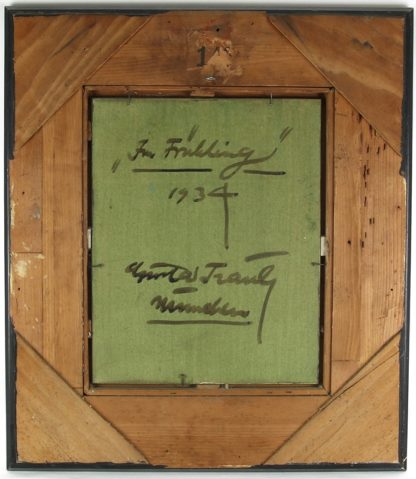 1
„Im Frühling"
1934
Gustav Traub
München